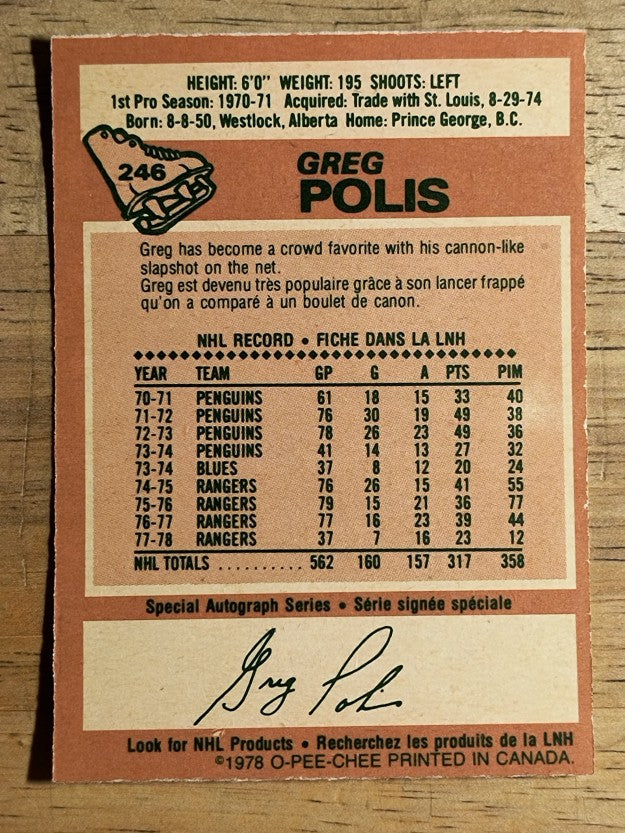 HEIGHT: 6'0" WEIGHT: 195 SHOOTS: LEFT
1st Pro Season: 1970-71 Acquired: Trade with St. Louis, 8-29-74
Born: 8-8-50, Westlock, Alberta Home: Prince George, B.C.
246
GREG
POLIS
Greg has become a crowd favorite with his cannon-like
slapshot on the net.
Greg est devenu très populaire grâce à son lancer frappé
qu'on a comparé à un boulet de canon.
NHL RECORD • FICHE DANS LA LNH
YEAR TEAM GP G A PTS PIM
70-71 PENGUINS 61 18 15 33 40
71-72 PENGUINS 76 30 19 49 38
72-73 PENGUINS 78 26 23 49 36
73-74 PENGUINS 41 14 13 27 32
73-74 BLUES 37 8 12 20 24
74-75 RANGERS 76 26 15 41 55
75-76 RANGERS 79 15 21 36 77
76-77 RANGERS 77 16 23 39 44
77-78 RANGERS 37 7 16 23 12
NHL TOTALS .......... 562 160 157 317 358
Special Autograph Series • Série signée spéciale
Greg Polis
Look for NHL Products • Recherchez les produits de la LNH
©1978 O-PEE-CHEE PRINTED IN CANADA.